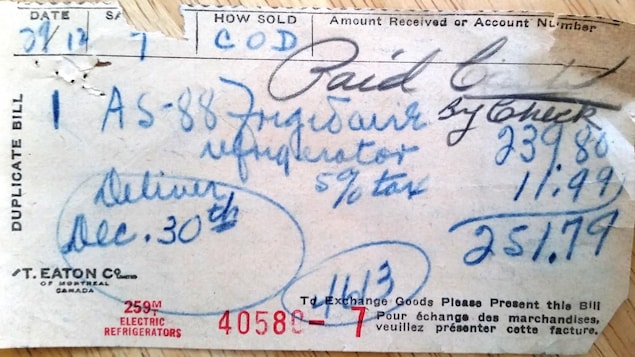 DATE SA HOW SOLD Amount Received or Account Number
29/12 7 COD
Paid
By Check
DUPLICATE BILL
1 AS-88 Frigidaire 239.80
refrigerator
5% tax 11.99
251.79
Deliver
Dec. 30th
T. EATON Co LIMITED
OF MONTREAL
CANADA
1613
259M
ELECTRIC
REFRIGERATORS
40580- 7
To Exchange Goods Please Present this Bill
Pour échange des marchandises,
veuillez présenter cette facture.